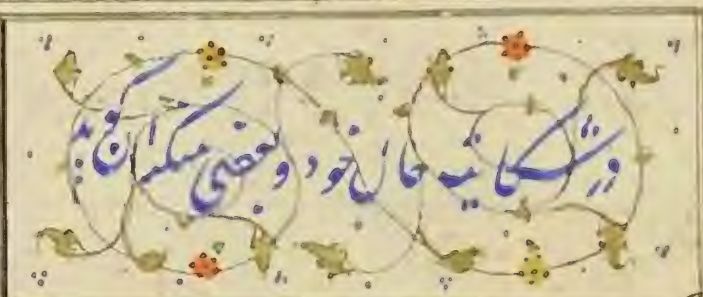 در شکایت حال خود و بعضی مسکینان گوید